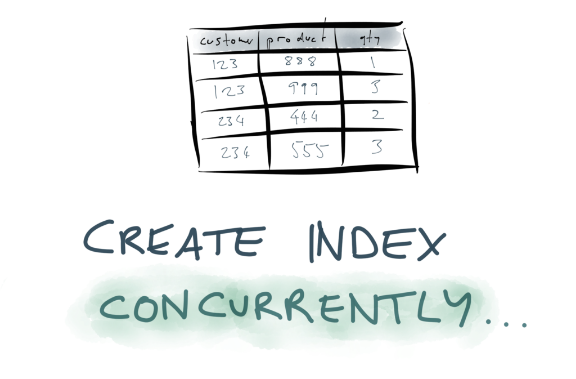 customer product qty
123 888 1
123 999 5
234 444 2
234 555 3
CREATE INDEX
CONCURRENTLY...